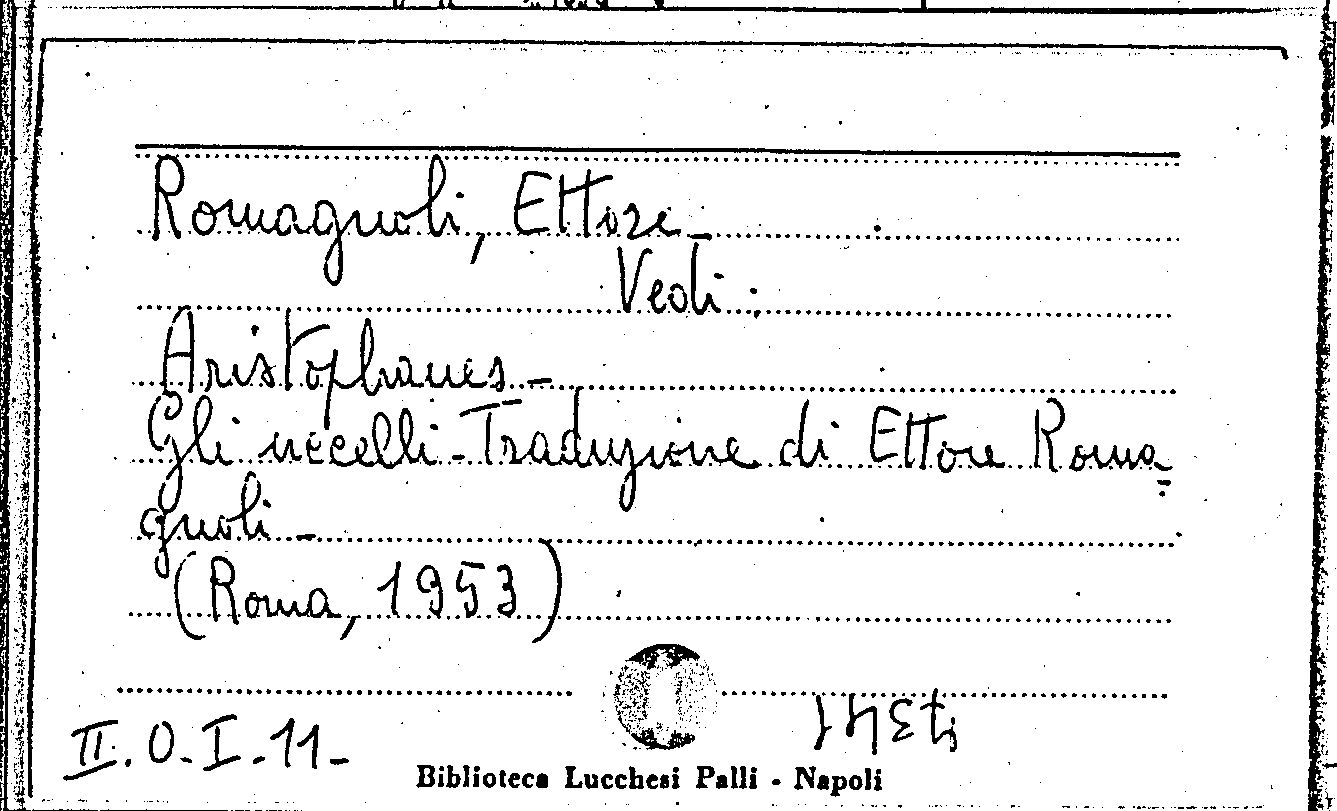 Romagnoli, Ettore -
Vedi :
Aristophanes -
Gli uccelli - Traduzione di Ettore Roma=
gnoli -
(Roma, 1953)
II. O. I. 11 -
Biblioteca Lucchesi Palli - Napoli